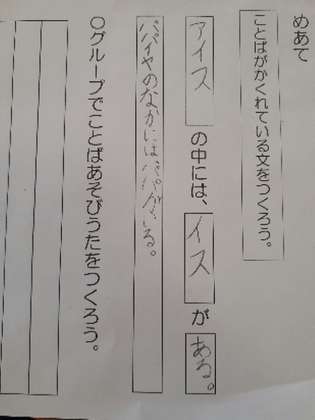 めあて
ことばがかくれている文をつくろう。
アイス の中には、イス が ある。
パパイヤのなかにはパパがいる。
○グループでことばあそびうたをつくろう。